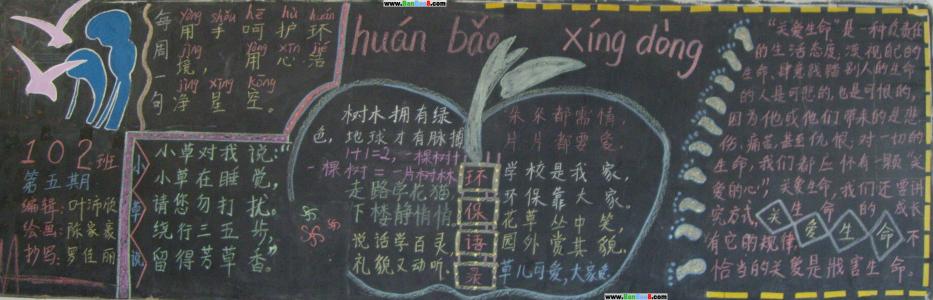 www.BanBao8.com
每
周
一
句
yòng shǒu hē hù huán
用手呵护环
jìng yòng xīn jié
境，用心洁
jìng xīng kōng
净星空。
huán bǎo xíng dòng
102班
第五期
编辑：叶沛欣
绘画：陈家豪
抄写：罗佳丽
小草说
小草对我说：
小草在睡觉，
请您勿打扰。
绕行三五步，
留得芳草香。
树木拥有绿
色，地球才有脉搏
1+1=2，一棵树+
一棵树=一片树林
走路学花猫
下楼静悄悄
说话学百灵，
礼貌又动听。
环保语录
朵朵都需情，
片片都要爱。
学校是我家，
环保靠大家。
花草丛中笑，
园外赏其貌。
草儿可爱，大家爱
“关爱生命”是一种负责任
的生活态度，漠视自己的
生命，肆意践踏别人的生命
的人是可悲的，也是可恨的，
因为他或他们带来的是悲
伤、痛苦甚至仇恨；对一切的
生命，我们都应怀有一颗“关
爱的心”，关爱生命，我们还要讲
究方式，生命的成长
有它的规律，不
恰当的关爱是戕害生命。
关爱生命
www.BanBao8.com